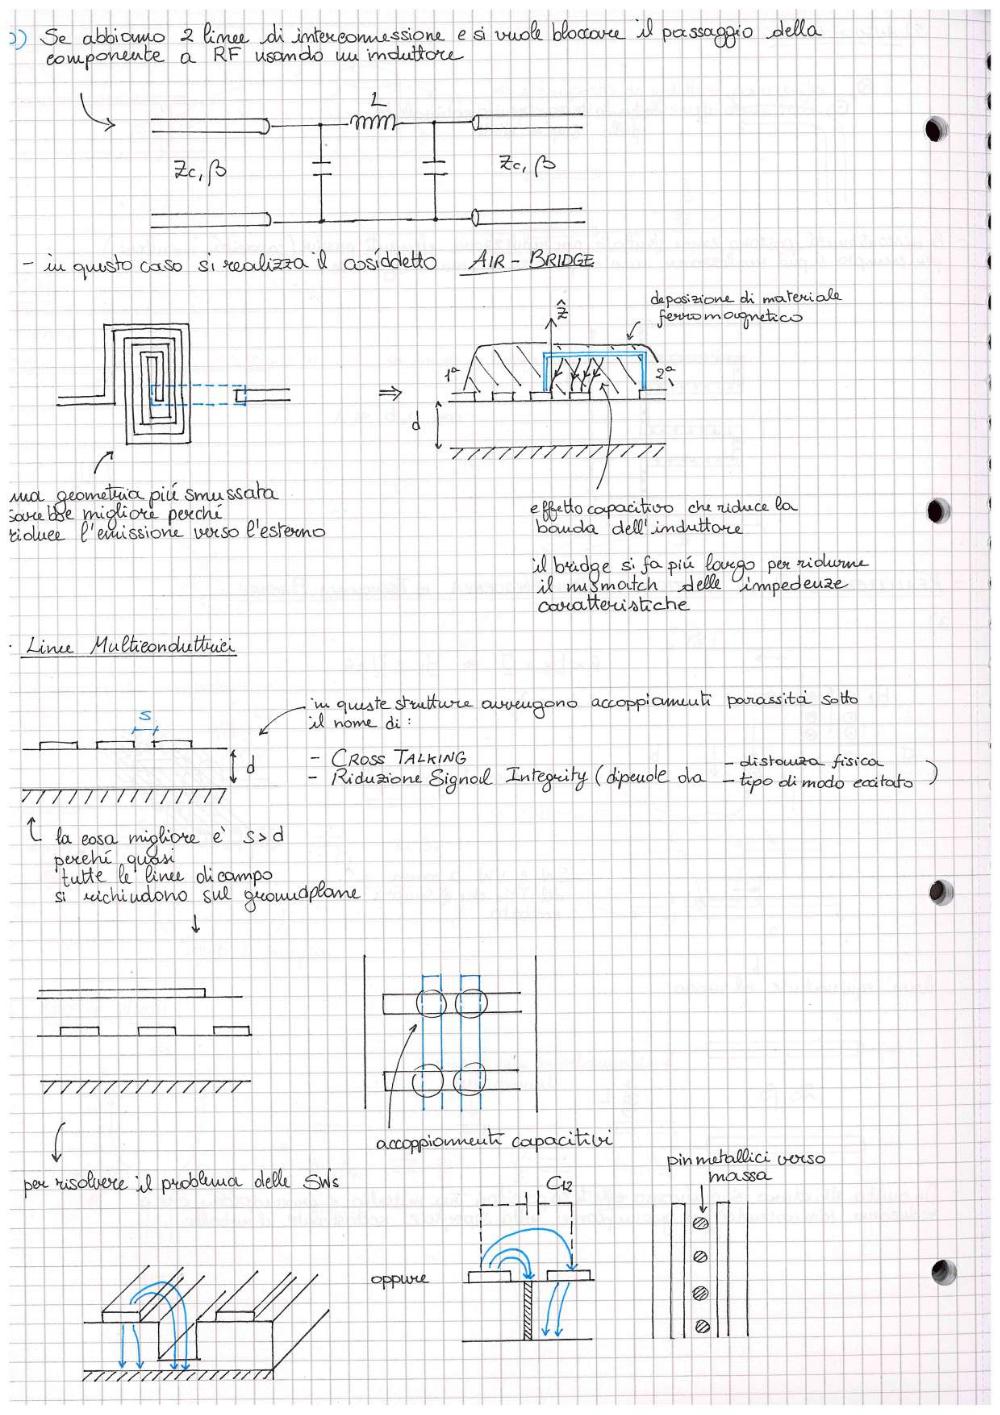 Se abbiamo 2 linee di interconnessione e si vuole bloccare il passaggio della
componente a RF usando un induttore
L
Zc, β
Zc, β
- in questo caso si realizza il cosiddetto AIR-BRIDGE
deposizione di materiale
ferromagnetico
ẑ
1ª
2ª
⇒
d
una geometria piú smussata
sarebbe migliore perché
riduce l'emissione verso l'esterno
effetto capacitivo che riduce la
banda dell'induttore
il bridge si fa piú largo per ridurne
il mismatch delle impedenze
caratteristiche
· Linee Multiconduttrici
s
d
in queste strutture avvengono accoppiamenti parassiti sotto
il nome di:
- CROSS TALKING
- Riduzione Signal Integrity (dipende da - distanza fisica
- tipo di modo eccitato )
la cosa migliore e' s>d
perché quasi
tutte le linee di campo
si richiudono sul groundplane
accoppiamenti capacitivi
per risolvere il problema delle SWs
oppure
C12
pin metallici verso
massa